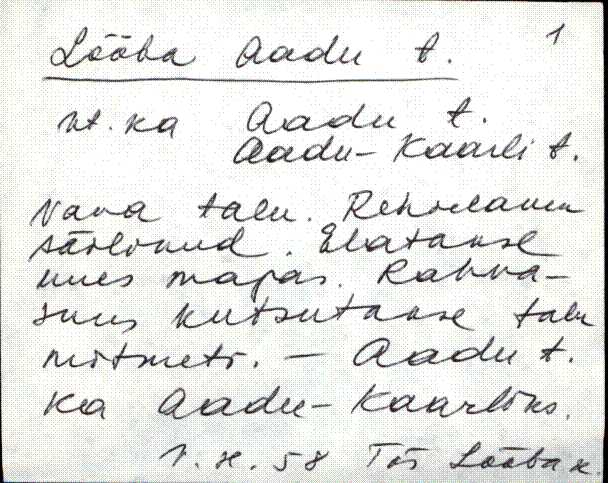 Lõõba Aadu t. 1
vt. ka Aadu t.
Aadu-Kaarli t.
Vana talu. Rehielamu
säilinud. Elatakse
uues majas. Rahva-
suus kutsutakse talu
mitmeti. – Aadu t.
ka Aadu-Kaarliks.
58 Tõs Lõõba k.